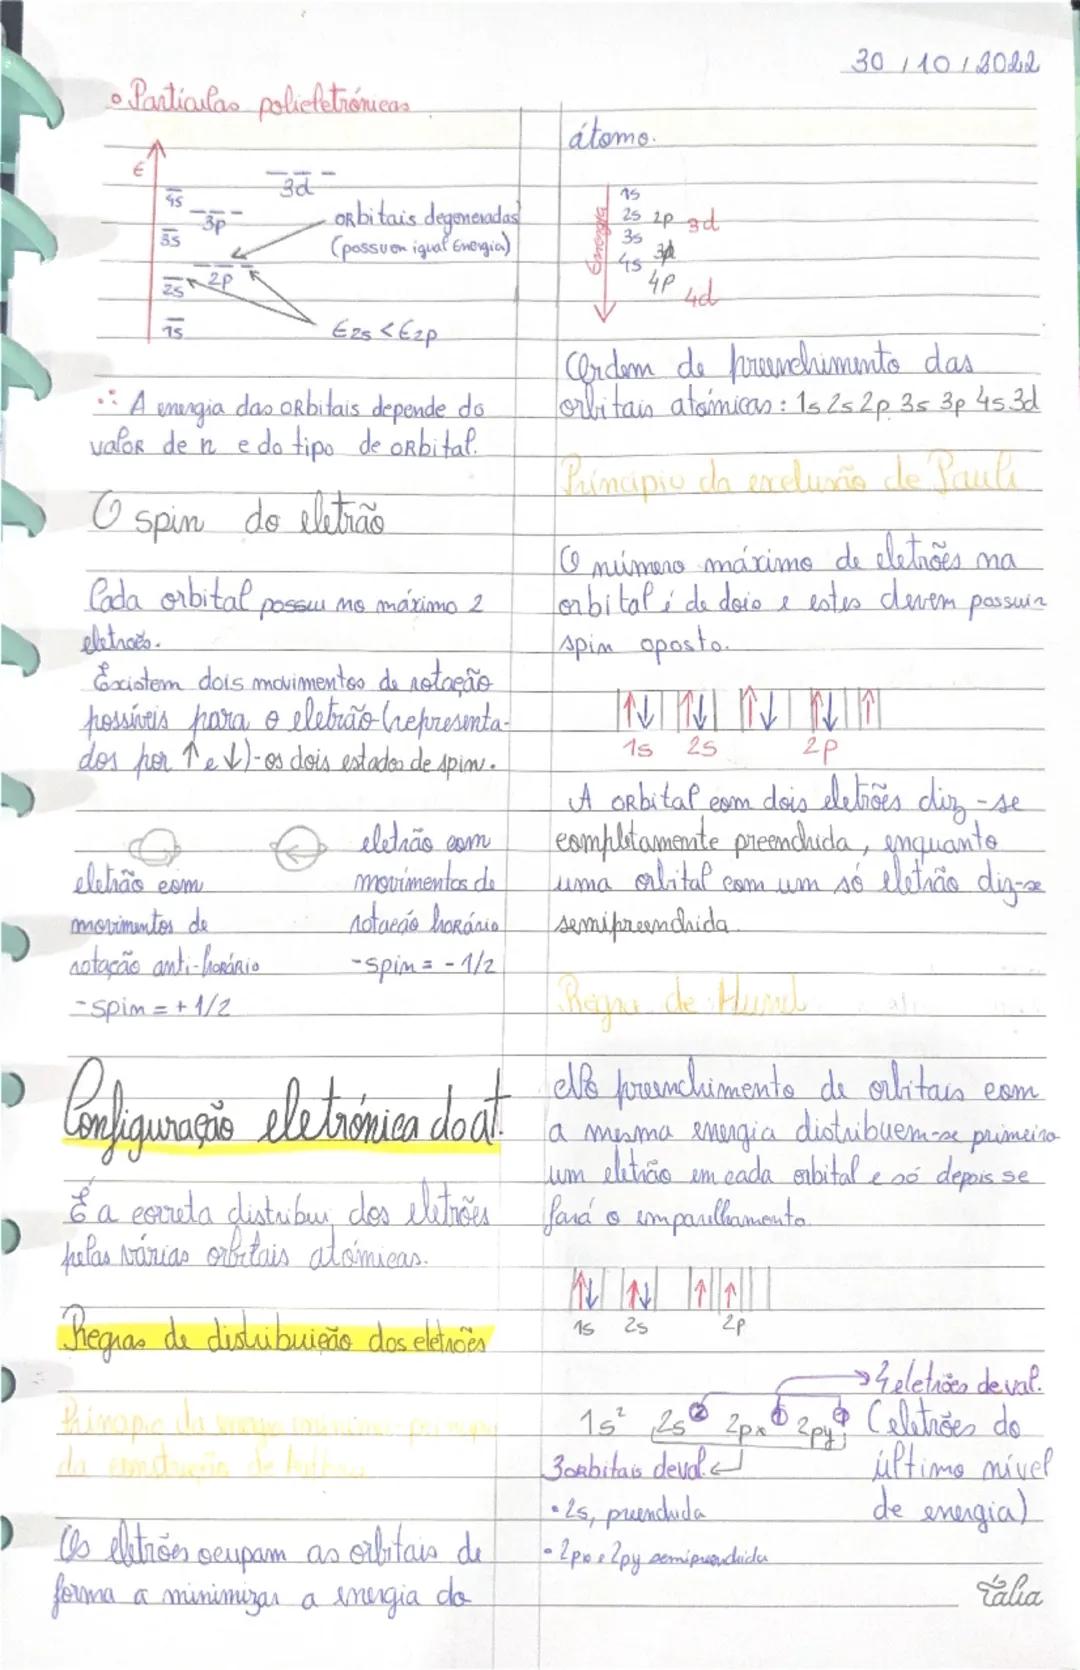 30/10/2022
• Partículas polieletrónicas
E
4s
3d
3p
3s
orbitais degeneradas
(possuem igual Energia)
2p
2s
1s
E2s < E2p
∴ A energia das orbitais depende do
valor de n e do tipo de orbital.
O spin do eletrão
Cada orbital possui no máximo 2
eletroēs.
Existem dois movimentos de rotação
possíveis para o eletrão (representa-
dos por ↑ e ↓) - os dois estados de spin.
eletrão com
movimentos de
rotação anti-horário
- spin = + 1/2
eletrão com
movimentos de
rotação horário
- spin = - 1/2
Configuração eletrónica do at.
É a correta distribui, dos eletrões
pelas várias orbitais atómicas.
Regras de distribuição dos eletrões
Princípio da energia mínima
da construção de
Os eletrões ocupam as orbitais de
forma a minimizar a energia do
átomo.
Energia
1s
2s 2p 3d
3s
4s 3p
4p 4d
Ordem de preenchimento das
orbitais atómicas: 1s 2s 2p 3s 3p 4s 3d
Princípio da exclusão de Pauli
O número máximo de eletrões na
orbital é de dois e estes devem possuir
spin oposto.
↑↓ ↑↓ ↑↓ ↑↓ ↑
1s 2s 2p
A orbital com dois eletrões diz-se
completamente preenchida, enquanto
uma orbital com um só eletrão diz-se
semipreenchida.
Regra de Hund
No preenchimento de orbitais com
a mesma energia distribuem-se primeiro
um eletrão em cada orbital e só depois se
fará o emparelhamento.
↑↓ ↑↓ ↑ ↑
1s 2s 2p
→ 4 eletrões de val.
1s² 2s² 2px¹ 2py¹ (eletrões do
3 orbitais de val. último nível
• 2s, preenchida de energia)
• 2px e 2py semipreenchida
Tália